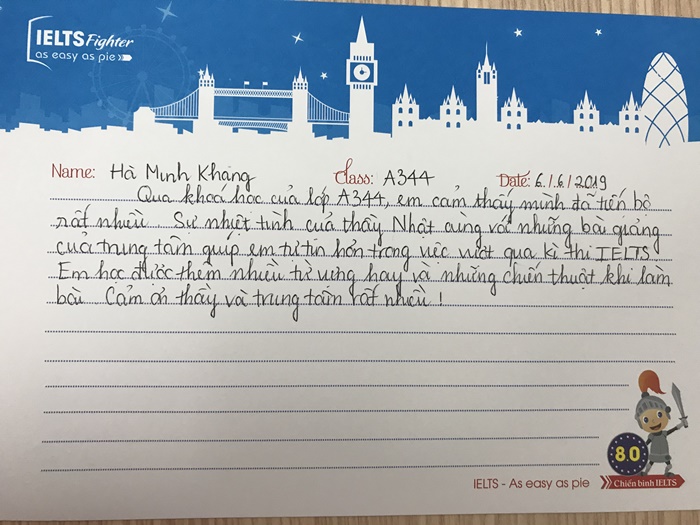 IELTS Fighter
as easy as pie
Name: Hà Minh Khang Class: A344 Date: 6/6/2019
Qua khoá học của lớp A344, em cảm thấy mình đã tiến bộ
rất nhiều. Sự nhiệt tình của thầy Nhật cùng với những bài giảng
của trung tâm giúp em tự tin hơn trong việc vượt qua kì thi IELTS
Em học được thêm nhiều từ vựng hay và những chiến thuật khi làm
bài. Cảm ơn thầy và trung tâm rất nhiều!
8.0
IELTS - As easy as pie Chiến binh IELTS